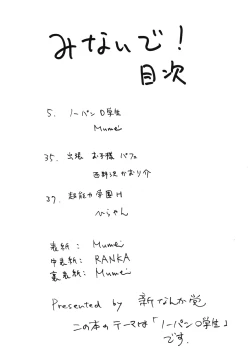 みないで!
目次
5. ノーパン○学生
Mumei
35. 出張 お子様 パフェ
西野沢かおり介
37. 超能力学園H
へらやん
表紙: Mumei
中表紙: RANKA
裏表紙: Mumei
Presented by 新なんか党
この本のテーマは「ノーパン○学生」
です.